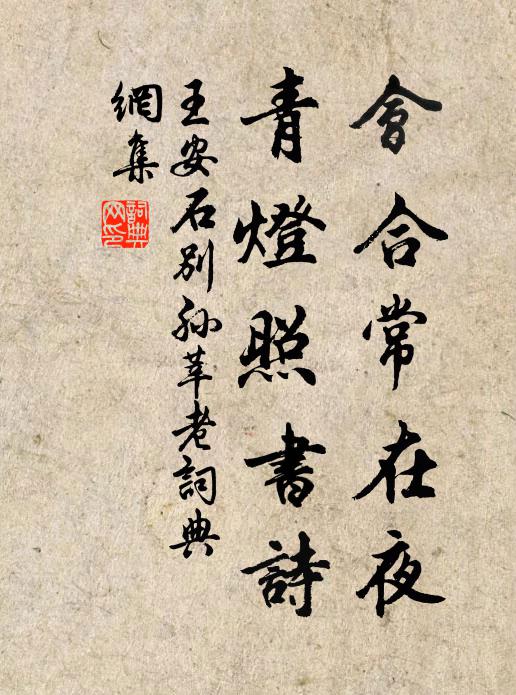 會合常在夜
青燈照書詩
王安石別孫莘老詞典
網集
詞典網印